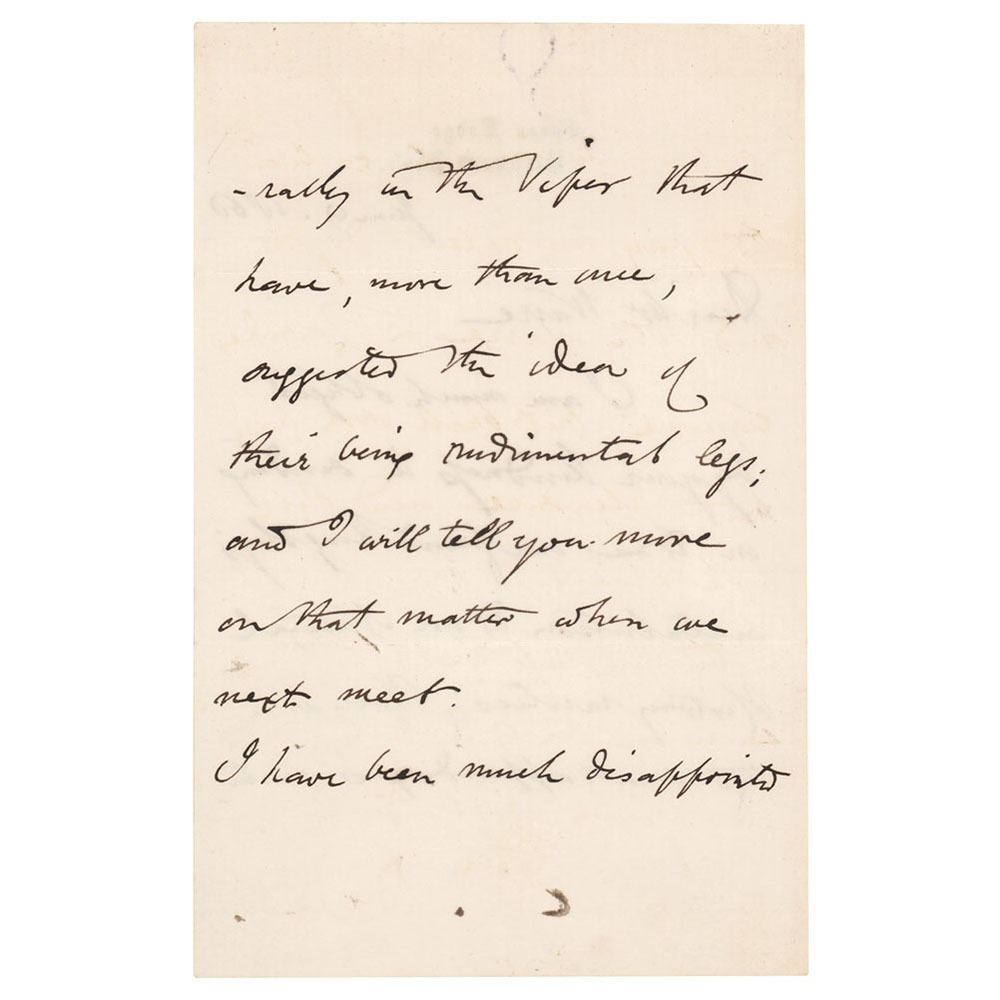 -rally in the Viper that
have, more than once,
suggested the idea of
their being rudimental legs;
and I will tell you more
on that matter when we
next meet.
I have been much disappointed